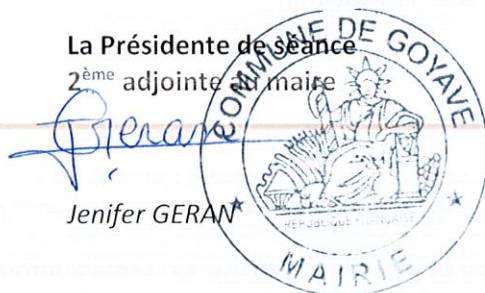 La Présidente de séance
2ème adjointe au maire
Geran
Jenifer GERAN
COMMUNE DE GOYAVE
REPUBLIQUE FRANÇAISE
MAIRIE